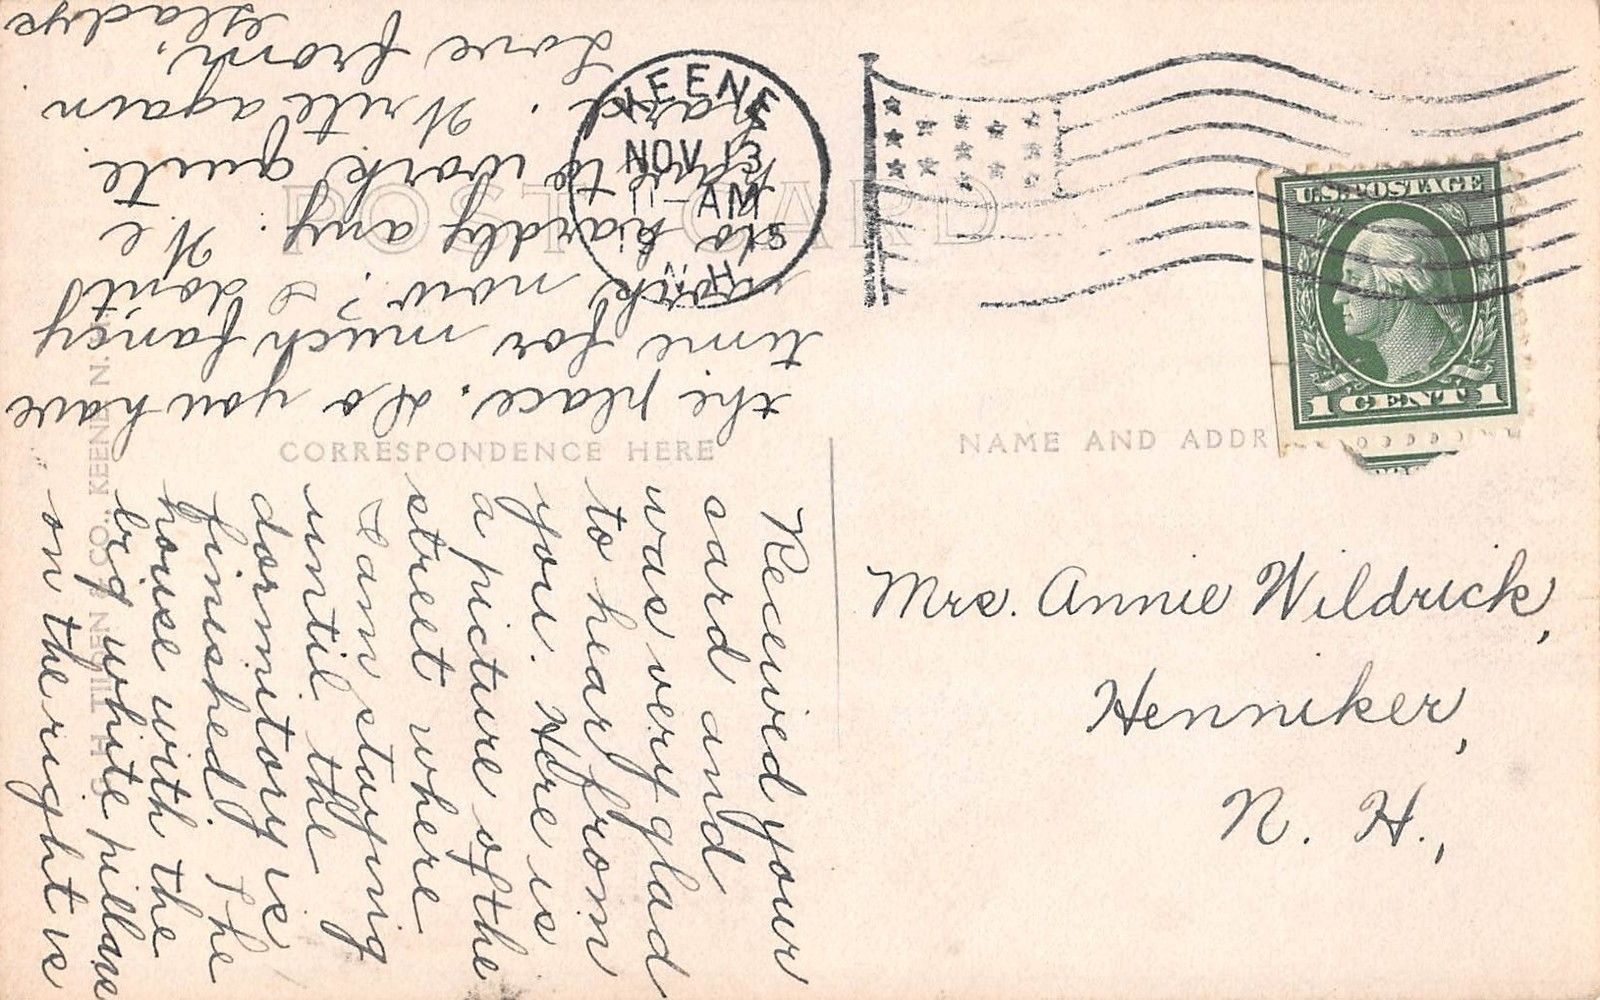 POST CARD
CORRESPONDENCE HERE
NAME AND ADDR
KEENE
NOV 13
11-AM
N.H.
U.S. POSTAGE
1 CENT 1
Received your
card and
was very glad
to hear from
you. Here is
a picture of the
street where
I am stuying
until the
dormitory is
finished. The
house with the
big white pillars
on the right is
the place. Do you have
time for much fancy
work now? I don't
do hardly any. We
have to work quite
hard. Write again
Love from,
Gladys
Mrs. Annie Wildrick,
Henniker,
N. H.,
CO., KEENE N.